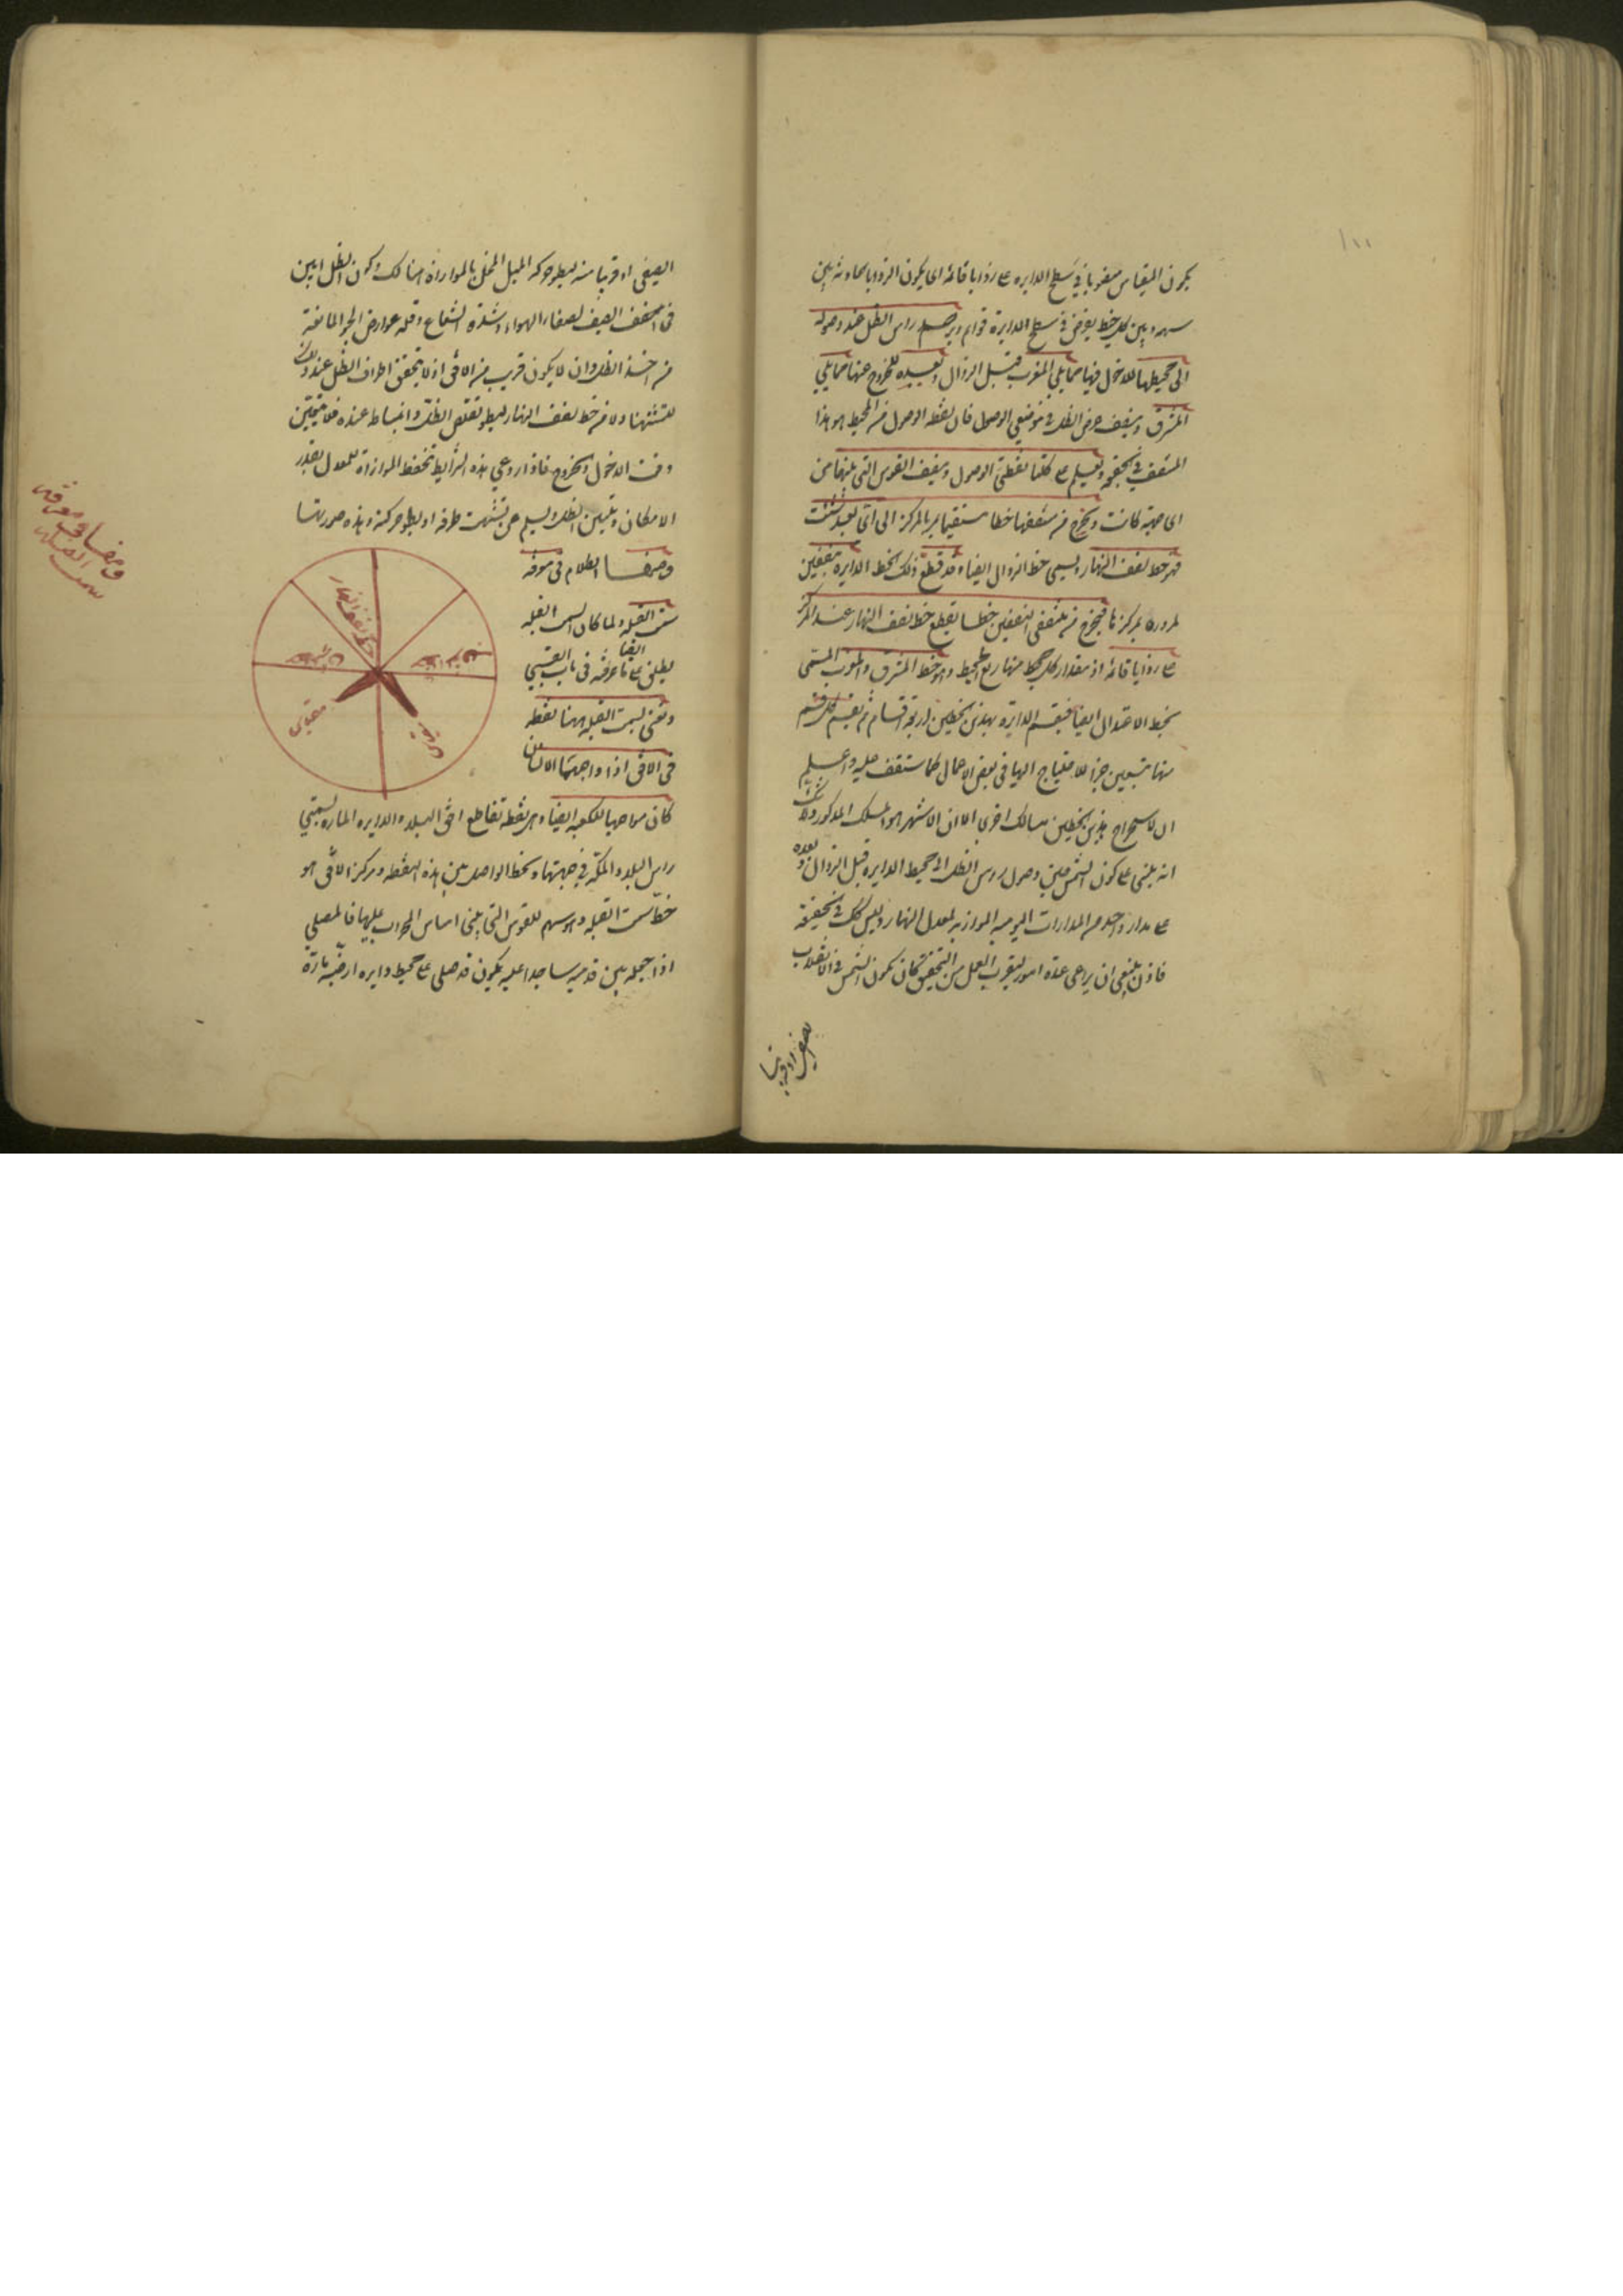 يكون المقياس منصوبا في سطح الدايرة على زوايا قائمة اى يكون الزوايا الحادثة بين
سهمه وبين كل خط يفرض في سطح الدايرة قوايم ويرصد راس الظل عند وصوله
الى محيطها للدخول فيها مما يلي المغرب قبل الزوال وبعيده للخروج عنها مما يلي
المشرق وينصف عرض الظل في موضعي الوصول فان نقطة الوصول من المحيط هو هذا
المنتصف في الحقيقة ويعلم على كلتا نقطتى الوصول وينصف القوس التى بينهما من
اى جهة كانت ويخرج من منتصفها خطا مستقيما يمر بالمركز الى اى بعد شئت
فهو خط نصف النهار ويسمى خط الزوال ايضا وقد قطع ذلك الخط الدايرة بنصفين
لمروره بمركزها فيخرج من منتصفى النصفين خطا يقطع خط نصف النهار عند المركز
على زوايا قائمة اذ مقدار كل محيط منها ربع المحيط وهو خط المشرق والمغرب المسمى
بخط الاعتدال ايضا فينقسم الدايرة بهذين الخطين اربعة اقسام ثم يقسم كل قسم
منها بتسعين جزأ للاحتياج اليها في بعض الاعمال كما ستقف عليه واعلم
ان لاستخراج هذين الخطين مسالك اخرى الا ان الاشهر هو المسلك المذكور ولا شك
انه يبتنى على كون الشمس حيني وصول رؤس الظل الى محيط الدايرة قبل الزوال وبعده
على مدار واحد من المدارات اليومية الموازية لمعدل النهار وليس كذلك في الحقيقة
فاذن ينبغى ان يراعى عدة امور ليقرب العمل من التحقيق كان يكون الشمس في الانقلاب
الصيفى او قريبا منه
الصيفى او قريبا منه لبطو حركة الميل المخل بالموازاة هنالك وكون الظل ابين
في الصيف لصفاء الهواء وشدة الشعاع وقلة عوارض الجو المانعة
من اخذ الظل وان لا يكون قريب من الافق اذ لا يتحقق اطراف الظل عند ذلك
لتشتتها ولا من خط نصف النهار لبطو تقلص الظل وانبساطه عنده فلا يتعين
وقت الدخول والخروج فاذا روعى هذه الشرايط تحفظ الموازاة للمعدل بقدر
الامكان ويتبين الظل ويسلم عن تشتت طرفه او بطو حركته وهذه صورتها
ومنها الكلام في معرفة
سمت القبلة ولما كان السمت القبلة
ايضا
يطلق على ما عرفته في باب القسي
ونعنى بسمت القبلة ههنا نقطة
في الافق اذا واجهها الانسان
كان مواجها للكعبة ايضا وهى نقطة تقاطع افق البلد والدايرة المارة بسمتي
راس البلد والمكة في جهتها والخط الواصل بين هذه النقطة ومركز الافق هو
خط سمت القبلة وهو سهم للقوس التى يبنى اساس المحراب عليها فالمصلى
اذا جعله بين قدميه ساجدا عليه يكون قد صلى على محيط دايرة ارضية مارة
خط نصف النهار
مقياس
ومنها في معرفة
سمت القبلة